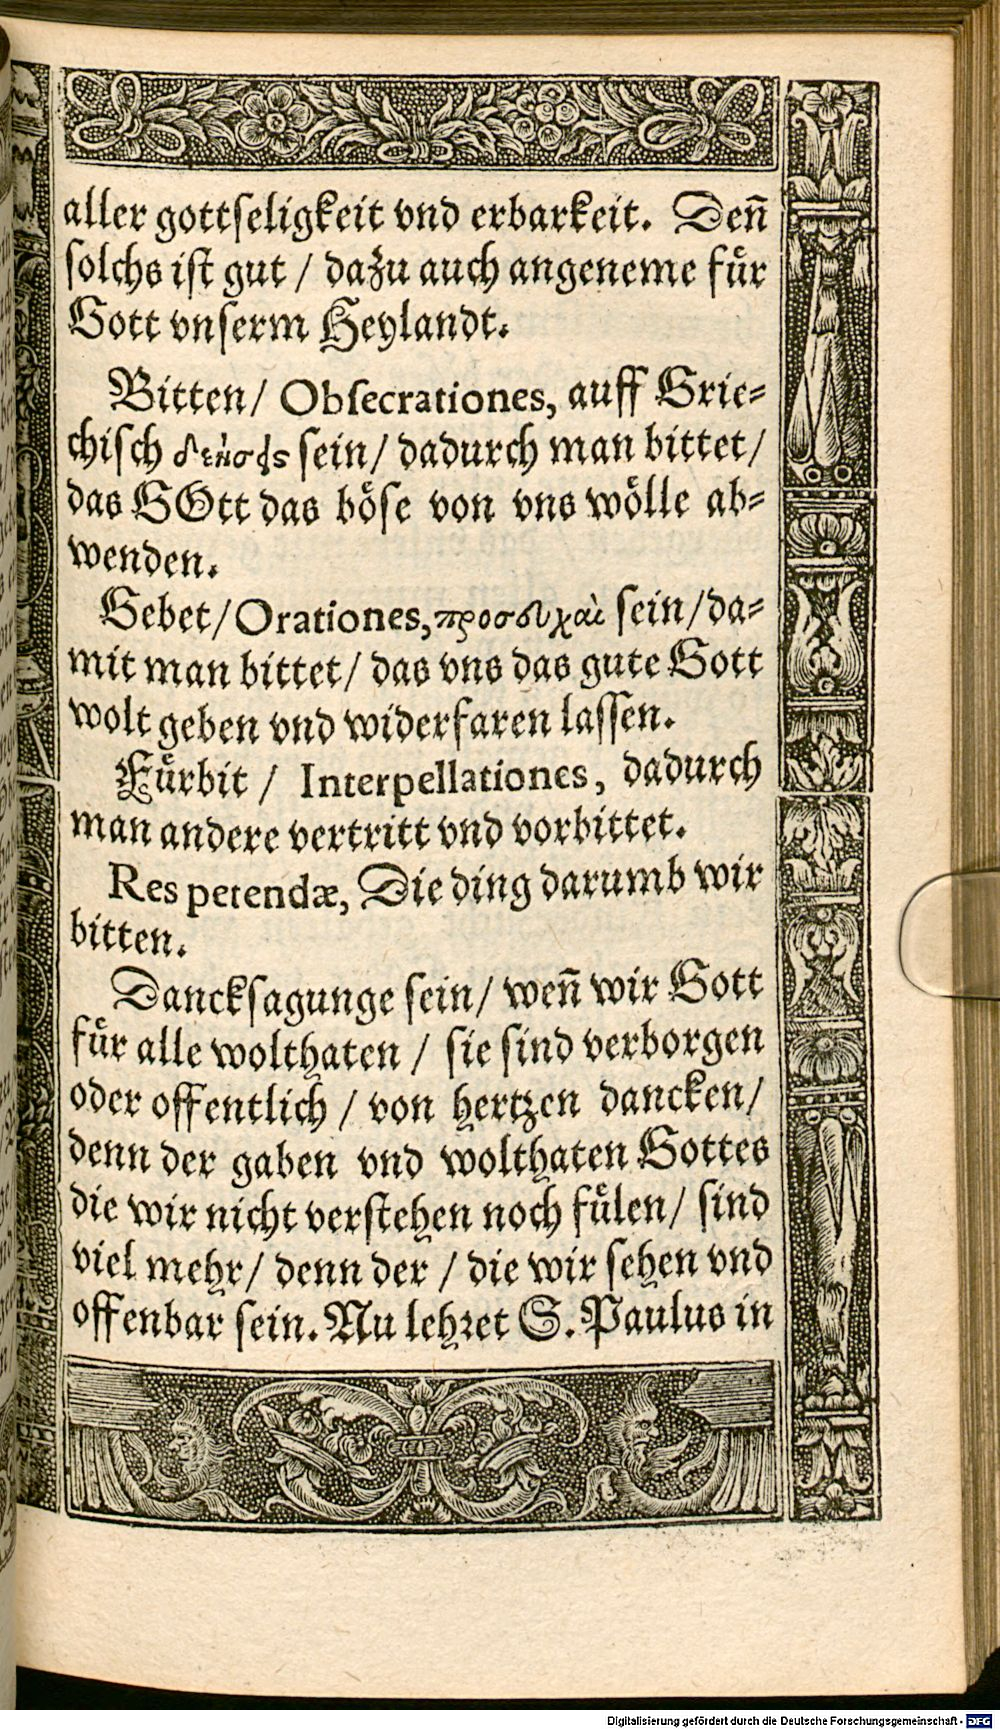 aller gottseligkeit vnd erbarkeit. Deñ
solchs ist gut / dazu auch angeneme fuͤr
Gott vnserm Heylandt.
Bitten / Obsecrationes, auff Grie=
chisch δεήσεις sein / dadurch man bittet /
das GOtt das boͤse von vns woͤlle ab=
wenden.
Gebet / Orationes, προσευχαὶ sein / da=
mit man bittet / das vns das gute Gott
wolt geben vnd widerfaren lassen.
Fuͤrbit / Interpellationes, dadurch
man andere vertritt vnd vorbittet.
Res petendæ, Die ding darumb wir
bitten.
Dancksagunge sein / weñ wir Gott
fuͤr alle wolthaten / sie sind verborgen
oder offentlich / von hertzen dancken /
denn der gaben vnd wolthaten Gottes
die wir nicht verstehen noch fuͤlen / sind
viel mehr / denn der / die wir sehen vnd
offenbar sein. Nu lehret S. Paulus in
Digitalisierung gefördert durch die Deutsche Forschungsgemeinschaft - DFG